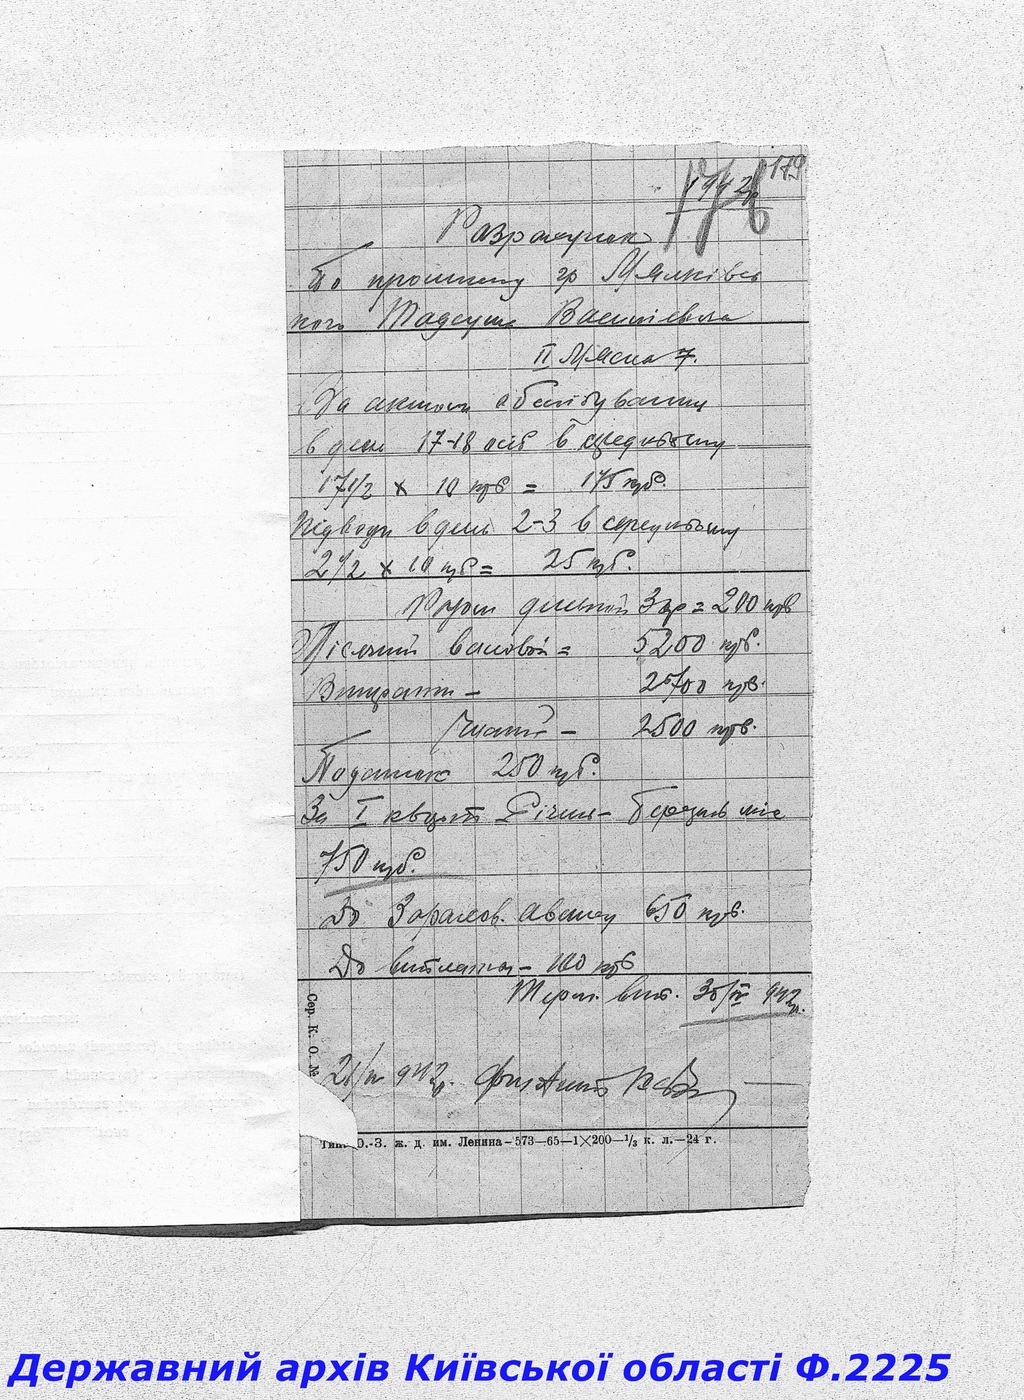 179
1942р
178
Розрахунок
По прошенню гр Мялківсь
кого Тадеуша Василієвича
II Мясна 7.
За актом обслідування
в день 17-18 осіб в середньому
17 1/2 × 10 крб = 175 крб.
Підводи в день 2-3 в середньому
2 1/2 × 10 крб = 25 крб.
Разом денний Зар = 200 крб
Місячний валовой = 5200 крб.
Витрати - 2700 крб.
Чистий - 2500 крб.
Податок 250 крб.
За I кварт Січень - березень міс
750 крб.
До Зарахов. авансу 650 крб.
До виплати - 100 крб
Терм. вип. 30/IV 942р.
942р.
Сер. К. О. №
О.-З. ж. д. им. Ленина—573—65—1×200—1/3 к. л.—24 г.
Державний архів Київської області Ф.2225